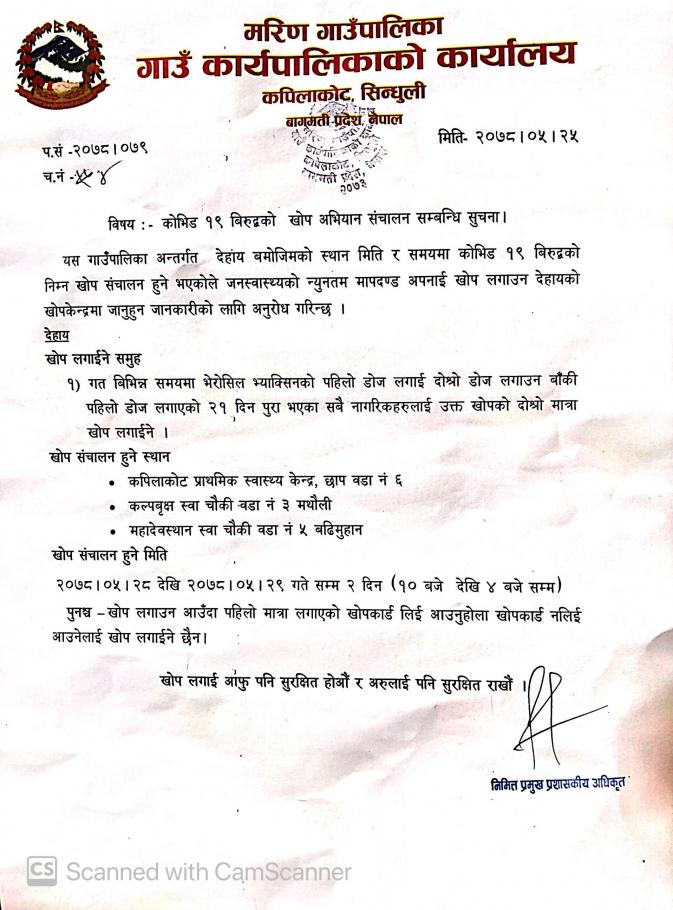 मरिण गाउँपालिका
गाउँ कार्यपालिकाको कार्यालय
कपिलाकोट, सिन्धुली
बागमती प्रदेश, नेपाल
प.सं -२०७८।०७९
मिति- २०७८।०५।२५
च.नं - ४
कपिलाकोट,
बागमती प्रदेश,
२०७३
विषय :- कोभिड १९ बिरुद्धको खोप अभियान संचालन सम्बन्धि सुचना।
यस गाउँपालिका अन्तर्गत देहांय बमोजिमको स्थान मिति र समयमा कोभिड १९ बिरुद्धको
निम्न खोप संचालन हुने भएकोले जनस्वास्थ्यको न्युनतम मापदण्ड अपनाई खोप लगाउन देहायको
खोपकेन्द्रमा जानुहुन जानकारीको लागि अनुरोध गरिन्छ ।
देहाय
खोप लगाईने समुह
१) गत बिभिन्न समयमा भेरोसिल भ्याक्सिनको पहिलो डोज लगाई दोश्रो डोज लगाउन बाँकी
पहिलो डोज लगाएको २१ दिन पुरा भएका सबै नागरिकहरुलाई उक्त खोपको दोश्रो मात्रा
खोप लगाईने ।
खोप संचालन हुने स्थान
• कपिलाकोट प्राथमिक स्वास्थ्य केन्द्र, छाप वडा नं ६
• कल्पबृक्ष स्वा चौकी वडा नं ३ मथौली
• महादेवस्थान स्वा चौकी वडा नं ५ बढिमुहान
खोप संचालन हुने मिति
२०७८।०५।२८ देखि २०७८।०५।२९ गते सम्म २ दिन (१० बजे देखि ४ बजे सम्म)
पुनश्च -खोप लगाउन आउँदा पहिलो मात्रा लगाएको खोपकार्ड लिई आउनुहोला खोपकार्ड नलिई
आउनेलाई खोप लगाईने छैन।
खोप लगाई आंफु पनि सुरक्षित होऔं र अरुलाई पनि सुरक्षित राखौं ।
निमित्त प्रमुख प्रशासकीय अधिकृत
CS Scanned with CamScanner